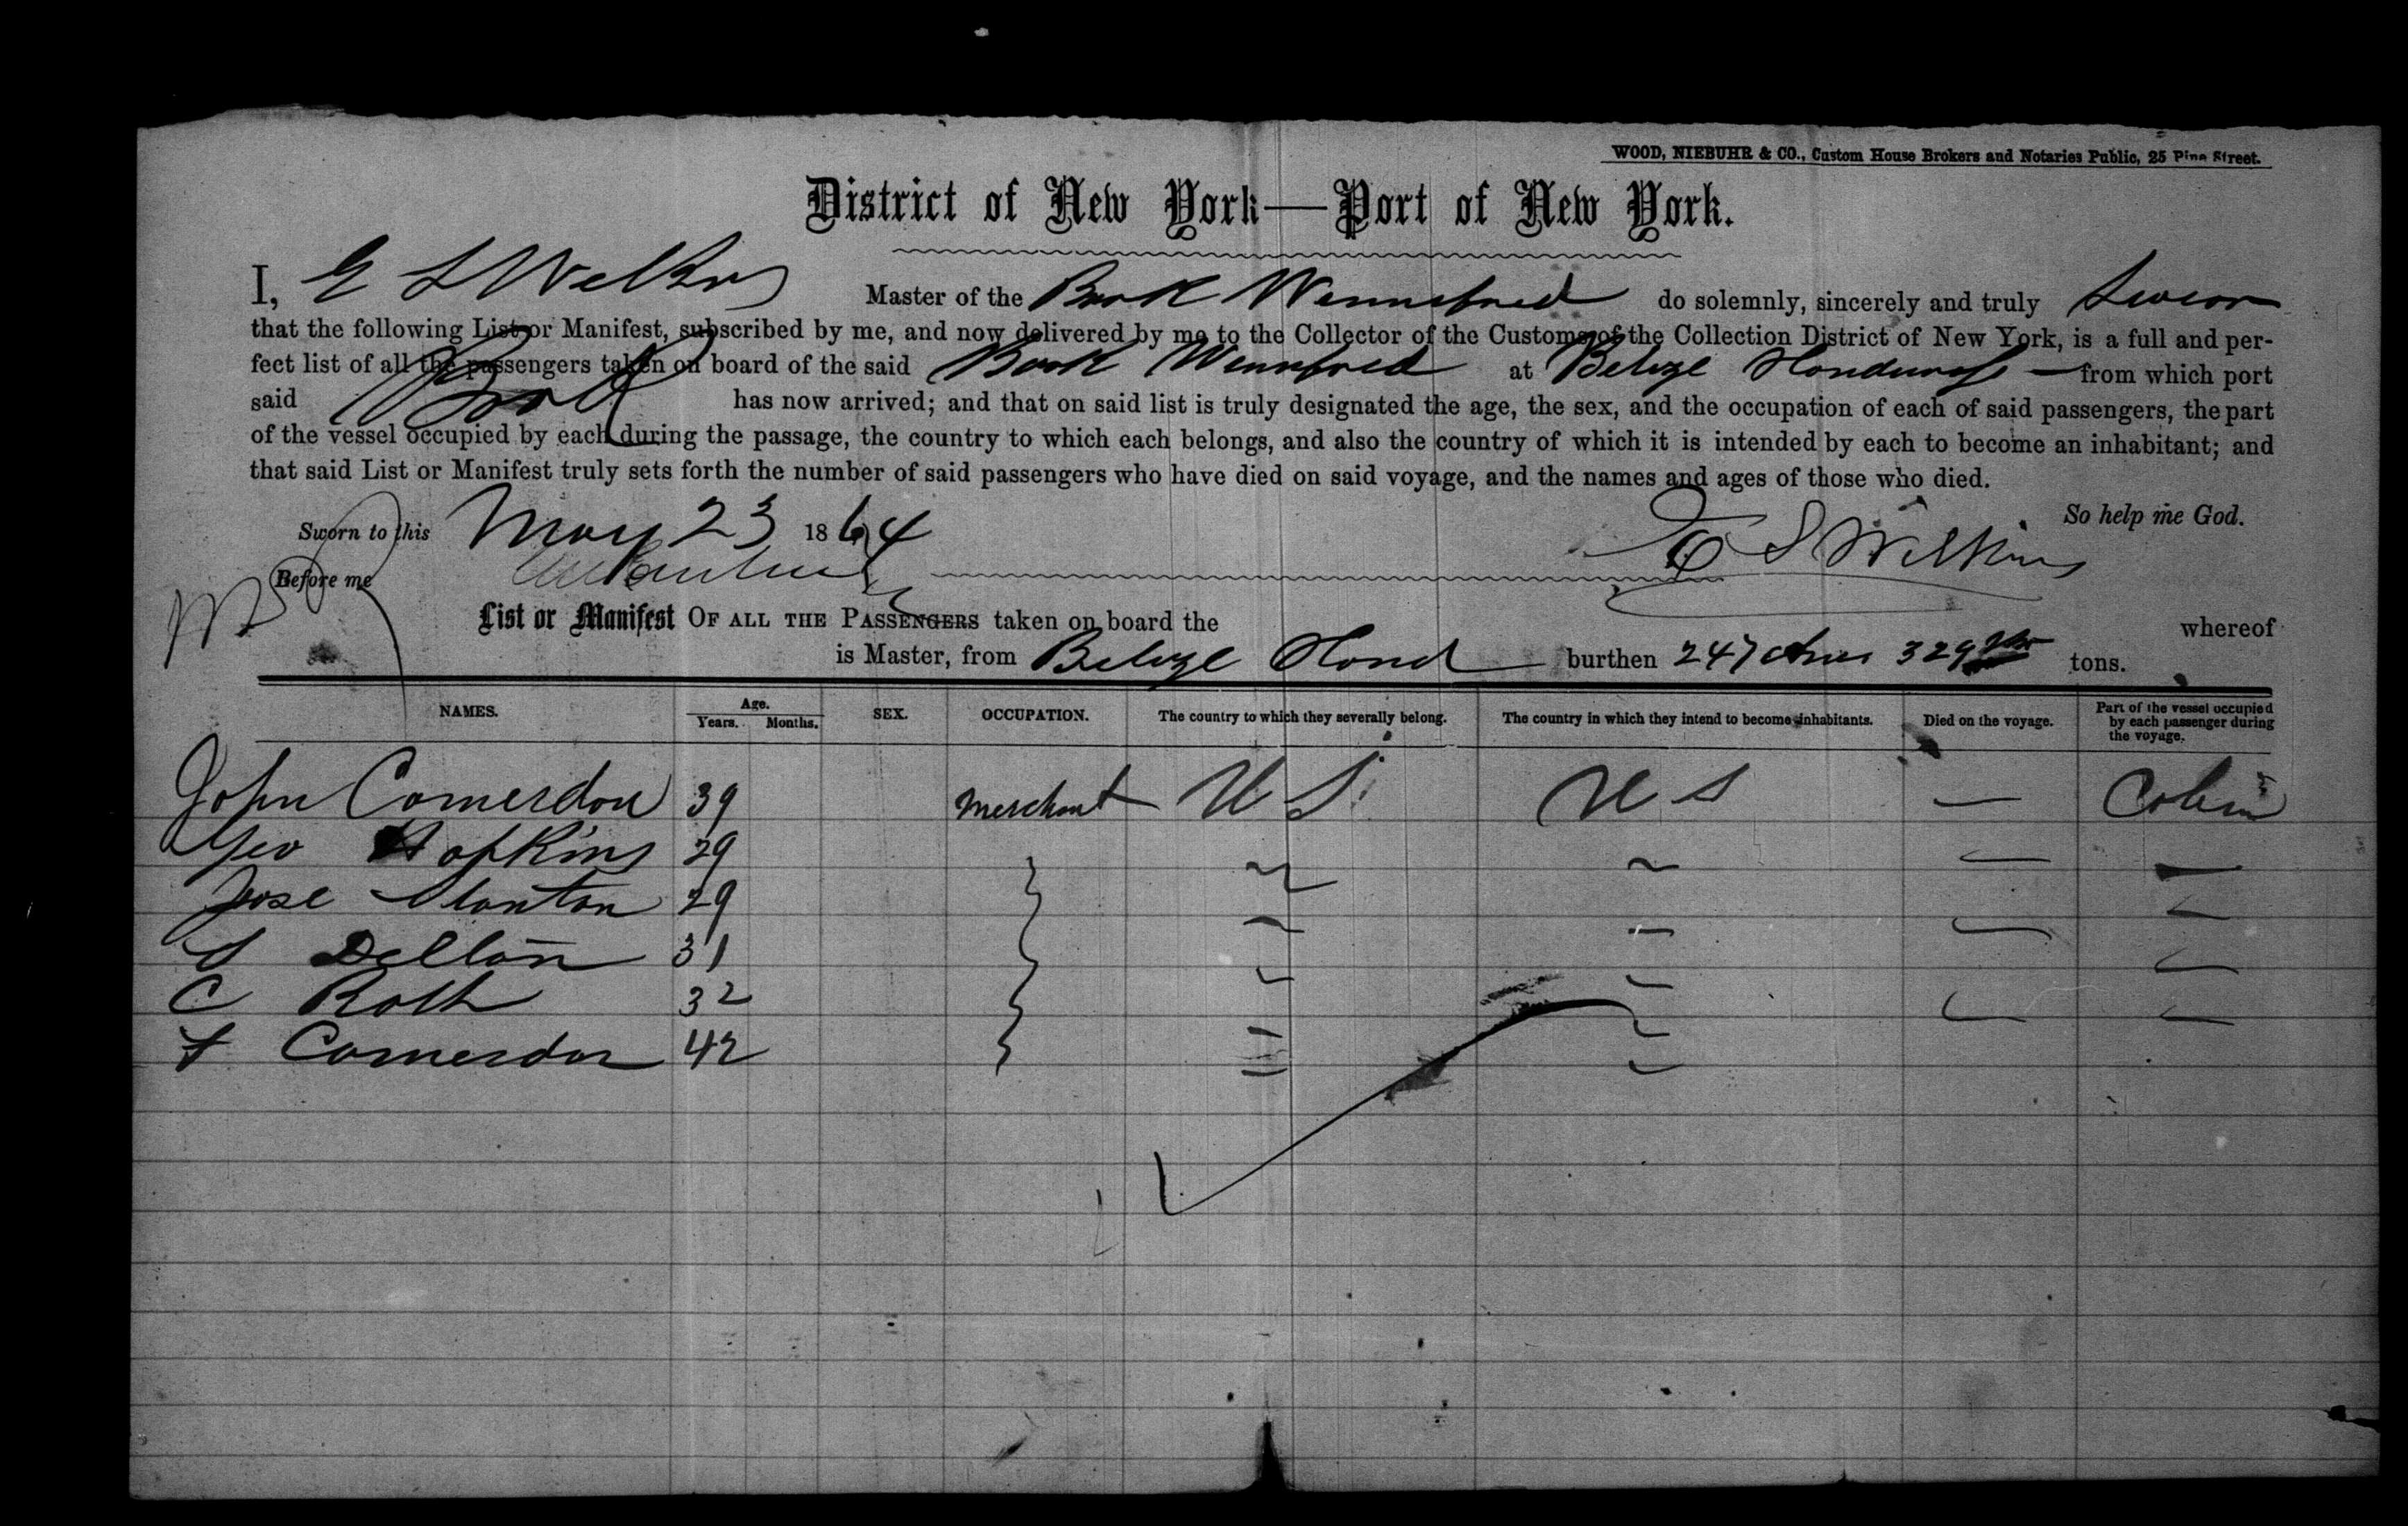 WOOD, NIEBUHR & CO., Custom House Brokers and Notaries Public, 25 Pine Street.
District of New York—Port of New York.
I, E S Wilkins Master of the Bark Winnefred do solemnly, sincerely and truly swear
that the following List or Manifest, subscribed by me, and now delivered by me to the Collector of the Customs of the Collection District of New York, is a full and per-
fect list of all the passengers taken on board of the said Bark Winnefred at Belize Honduras from which port
said Bark has now arrived; and that on said list is truly designated the age, the sex, and the occupation of each of said passengers, the part
of the vessel occupied by each during the passage, the country to which each belongs, and also the country of which it is intended by each to become an inhabitant; and
that said List or Manifest truly sets forth the number of said passengers who have died on said voyage, and the names and ages of those who died.
So help me God.
Sworn to this May 23 1864 E S Wilkins
Before me
List or Manifest OF ALL THE PASSENGERS taken on board the whereof
is Master, from Belize Hond burthen 247 329 tons.
NAMES. Age. Years. Months. SEX. OCCUPATION. The country to which they severally belong. The country in which they intend to become inhabitants. Died on the voyage. Part of the vessel occupied by each passenger during the voyage.
John Comerdon 39 merchant U S U S — Cabin
Geo Hopkins 29
Jose Stanton 29
S Dellon 31
C Roth 32
F Comerdon 42